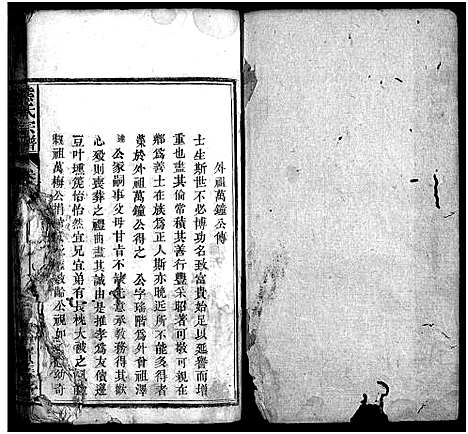 外祖萬鐘公傳
士生斯世不必博功名致富貴始足以延譽而增
重也盡其倫常積其善行豐采昭著可敬可親在
鄉為善士在族為正人斯亦晚近所不能多得者
葉於外祖萬鐘公得之 公字瑤階為外曾祖澤
公家嗣事父母甘旨不缺先意承教務得其歡
心歿則喪葬之禮曲盡其誠由是推孝為友僨遵
豆叶壎箎怡怡然宜兄宜弟有長枕大被之風
祖萬梅公 公視如 奇
氏宗譜